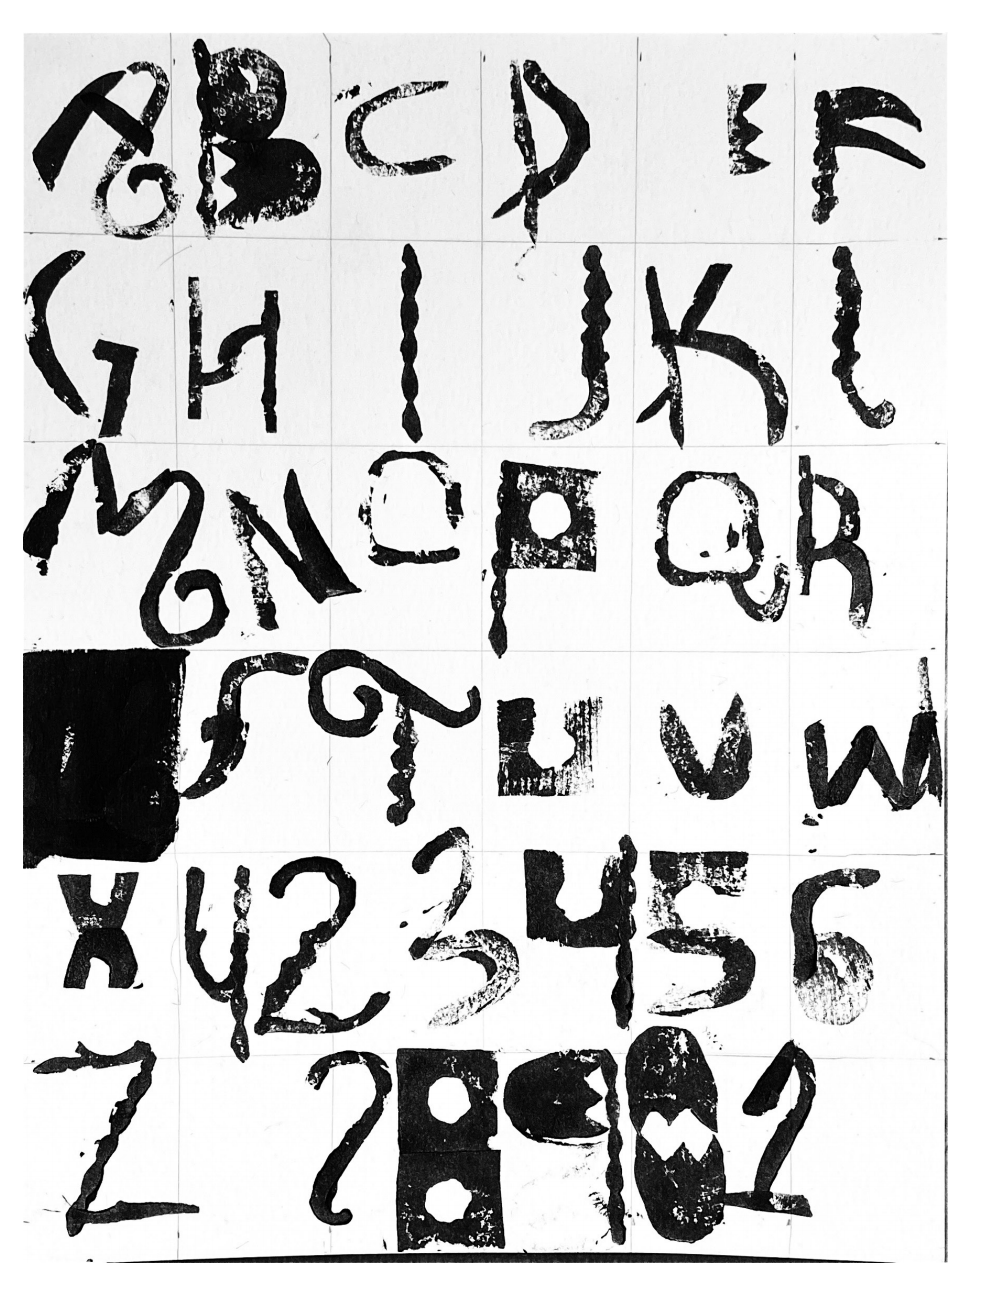 A B C D E F
G H I J K L
M N O P Q R
S T U V W
X Y 2 3 4 5 6
Z 7 8 9 0 1